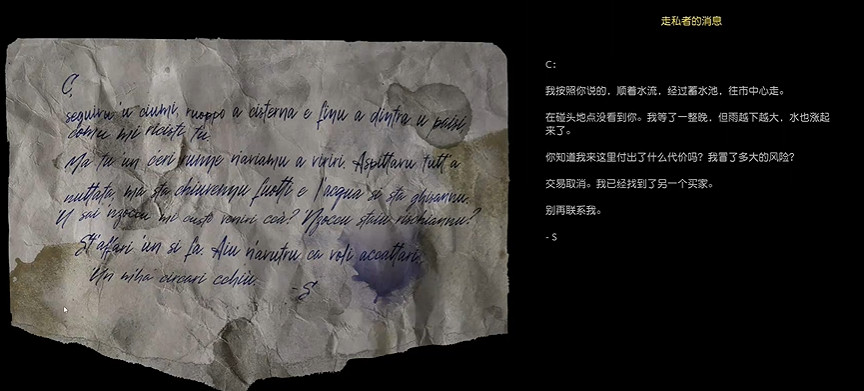 C,
seguivu 'u ciumi, ruoppo a cisterna e finu a dintra u paisi,
comu mi ricisti tu.
Ma tu 'un c'eri runne n'aviamu a viriri. Aspittavu tutt'a
nuttata, ma sta chiuvennu fuotti e l'acqua si sta ghisannu.
'U sai nzoccu mi custò veniri ccà? Nzoccu staiu rischiannu?
St'affari 'un si fa. Aiu n'avutru ca voli accattari.
'Un miha circari cchiù.
-S
走私者的消息
C:
我按照你说的，顺着水流，经过蓄水池，往市中心走。
在碰头地点没看到你。我等了一整晚，但雨越下越大，水也涨起
来了。
你知道我来这里付出了什么代价吗？我冒了多大的风险？
交易取消。我已经找到了另一个买家。
别再联系我。
- S